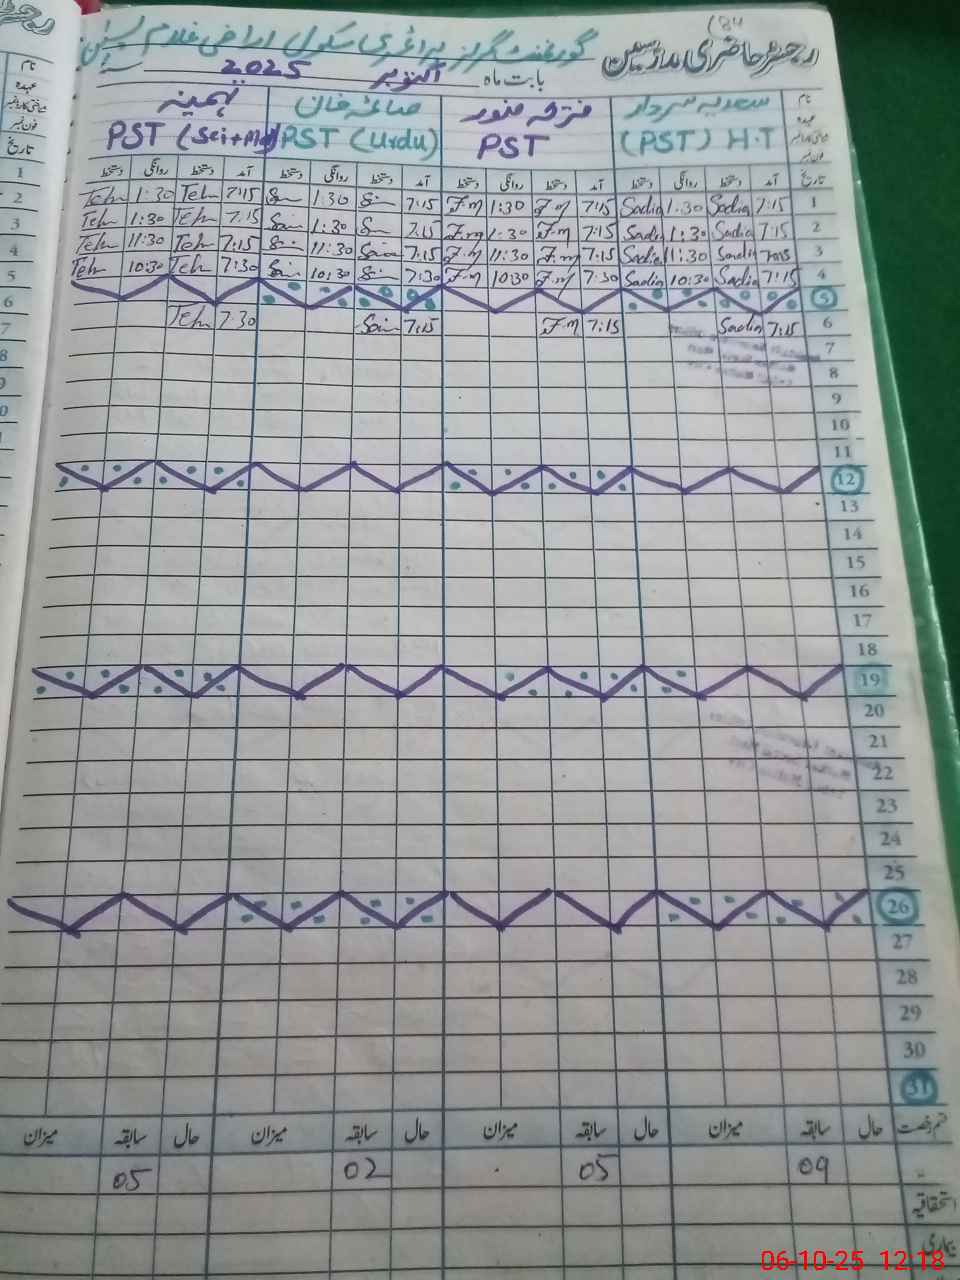 184
رجسٹر حاضری مدرسین گورنمنٹ گرلز پرائمری سکول اراضی غلام
بابت ماہ اکتوبر 2025
نام سعدیہ سردار منور صائمہ خان تہمینہ
عہدہ (PST) H.T PST PST (Urdu) PST (Sci+Ma
فون نمبر
تاریخ آمد دستخط روانگی دستخط آمد دستخط روانگی دستخط آمد دستخط روانگی دستخط آمد دستخط روانگی دستخط
1 7:15 Sadia 1:30 Sadia 7:15 F.m 1:30 F.m 7:15 Sai 1:30 Sai 7:15 Teh 1:30 Teh
2 7:15 Sadia 1:30 Sadi 7:15 F.m 1:30 F.m 7:15 Sai 1:30 Sai 7:15 Teh 1:30 Teh
3 Sadia 11:30 Sadia 7:15 F.m 11:30 F.m 7:15 Saim 11:30 Sai 7:15 Teh 11:30 Teh
4 7:15 Sadia 10:30 Sadia 7:30 F.m 10:30 F.m 7:30 Sai 10:30 Sai 7:30 Teh 10:30 Teh
5
6 7:15 Sadia 7:15 F.m 7:15 Saim 7:30 Teh
7
8
9
10
11
12
13
14
15
16
17
18
19
20
21
22
23
24
25
26
27
28
29
30
31
قسم رخصت حال سابقہ میزان حال سابقہ میزان حال سابقہ میزان حال سابقہ میزان
09 05 02 05
استحقاقیہ
بیماری
06-10-25 12:18